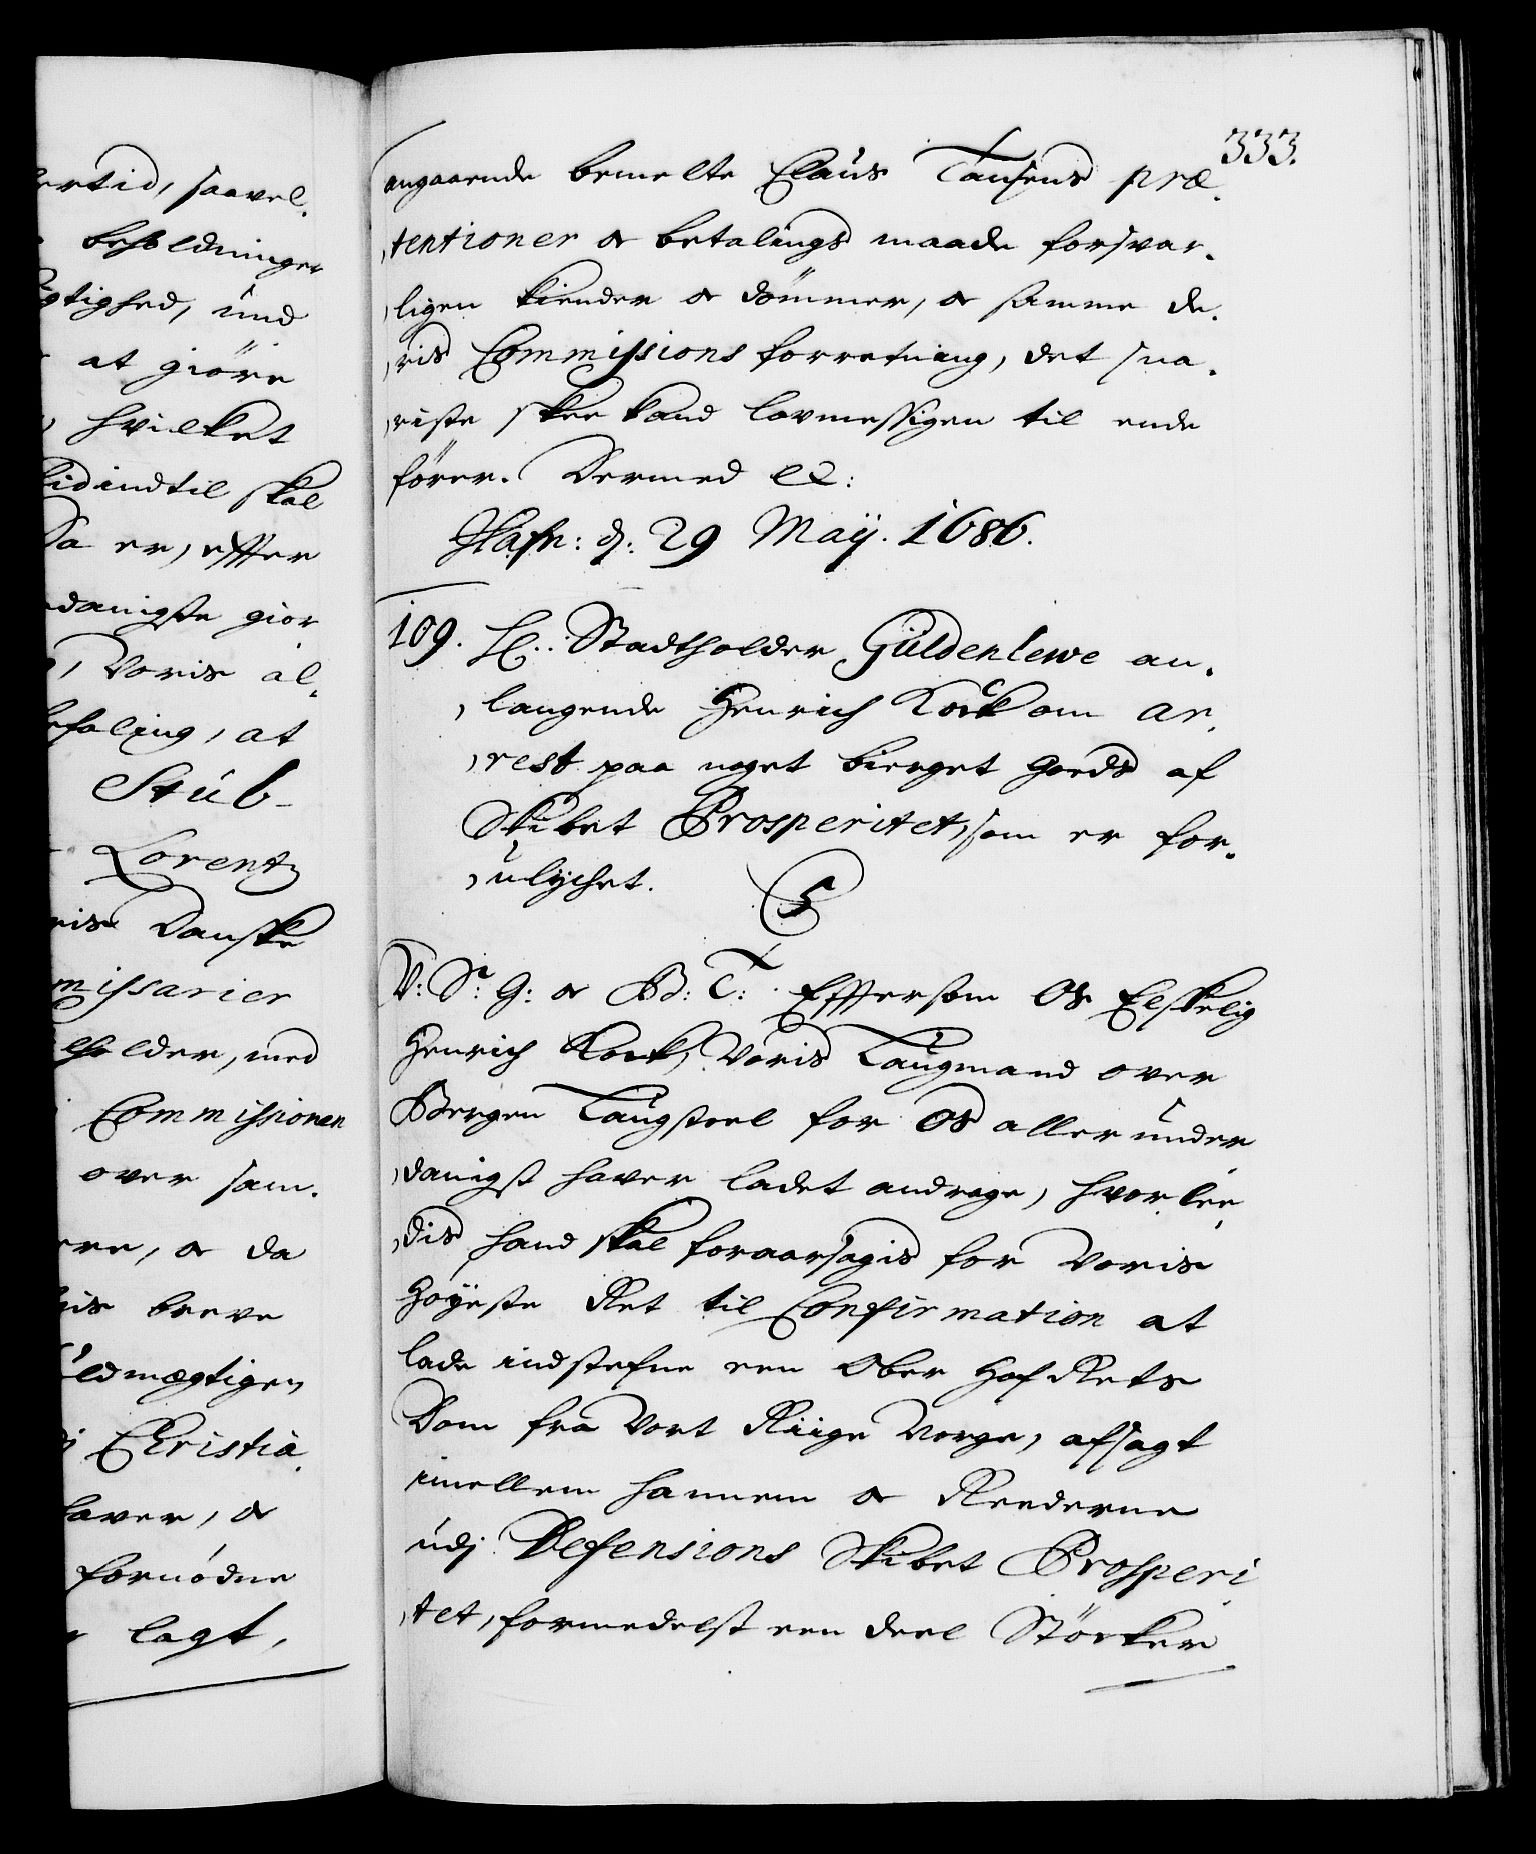 ertid, saavel,
beholdninger
gtighed, und
at giöre
hvilket
tidindtil skal
Da er, effter
danigste gior
, Voris al,
befaling, at
Stub-
Lorentz
ris Danske
missarier
holder, med
Commissionen
over sam,
ere, oc da
his breve
uldmægtigen
Christia,
laver, oc
fornödne
lagt,
333.
angaaende bemelte Claus Tausens præ,
,tentioner oc betalings maade forsvar,
,ligen kiender oc dömmer, oc samme de,
,ris Commissions forretning, det sna,
,riste skee kand lovmessigen til ende
förer. Dermed etc:
Hafn: d: 29 Maÿ. 1686.
109. H: Stadtholder Güldenlewe an,
,langende Henrich Kock om ar,
,rest paa noget bierget Goeds af
Skibet Prosperitet, som er for,
,ulychet.
C5
V: Sr: G: oc Bd: T: Efftersom Os Elskelig
Henrich Kock, Voris Laugmand over
Bergen Laugstoel for Os allerunder
,danigst haver ladet andrage, hvorlee,
,dis hand skal foraarsagis for Voris
Höÿeste Ret til Confirmation at
lade indstefne een Ober Hof Rets
Dom fra Vort Riige Norge, afsagt
imellem hannem oc Reederne
udj Defensions Skibet Prosperi
,tet, formedelst een deel Stöcker